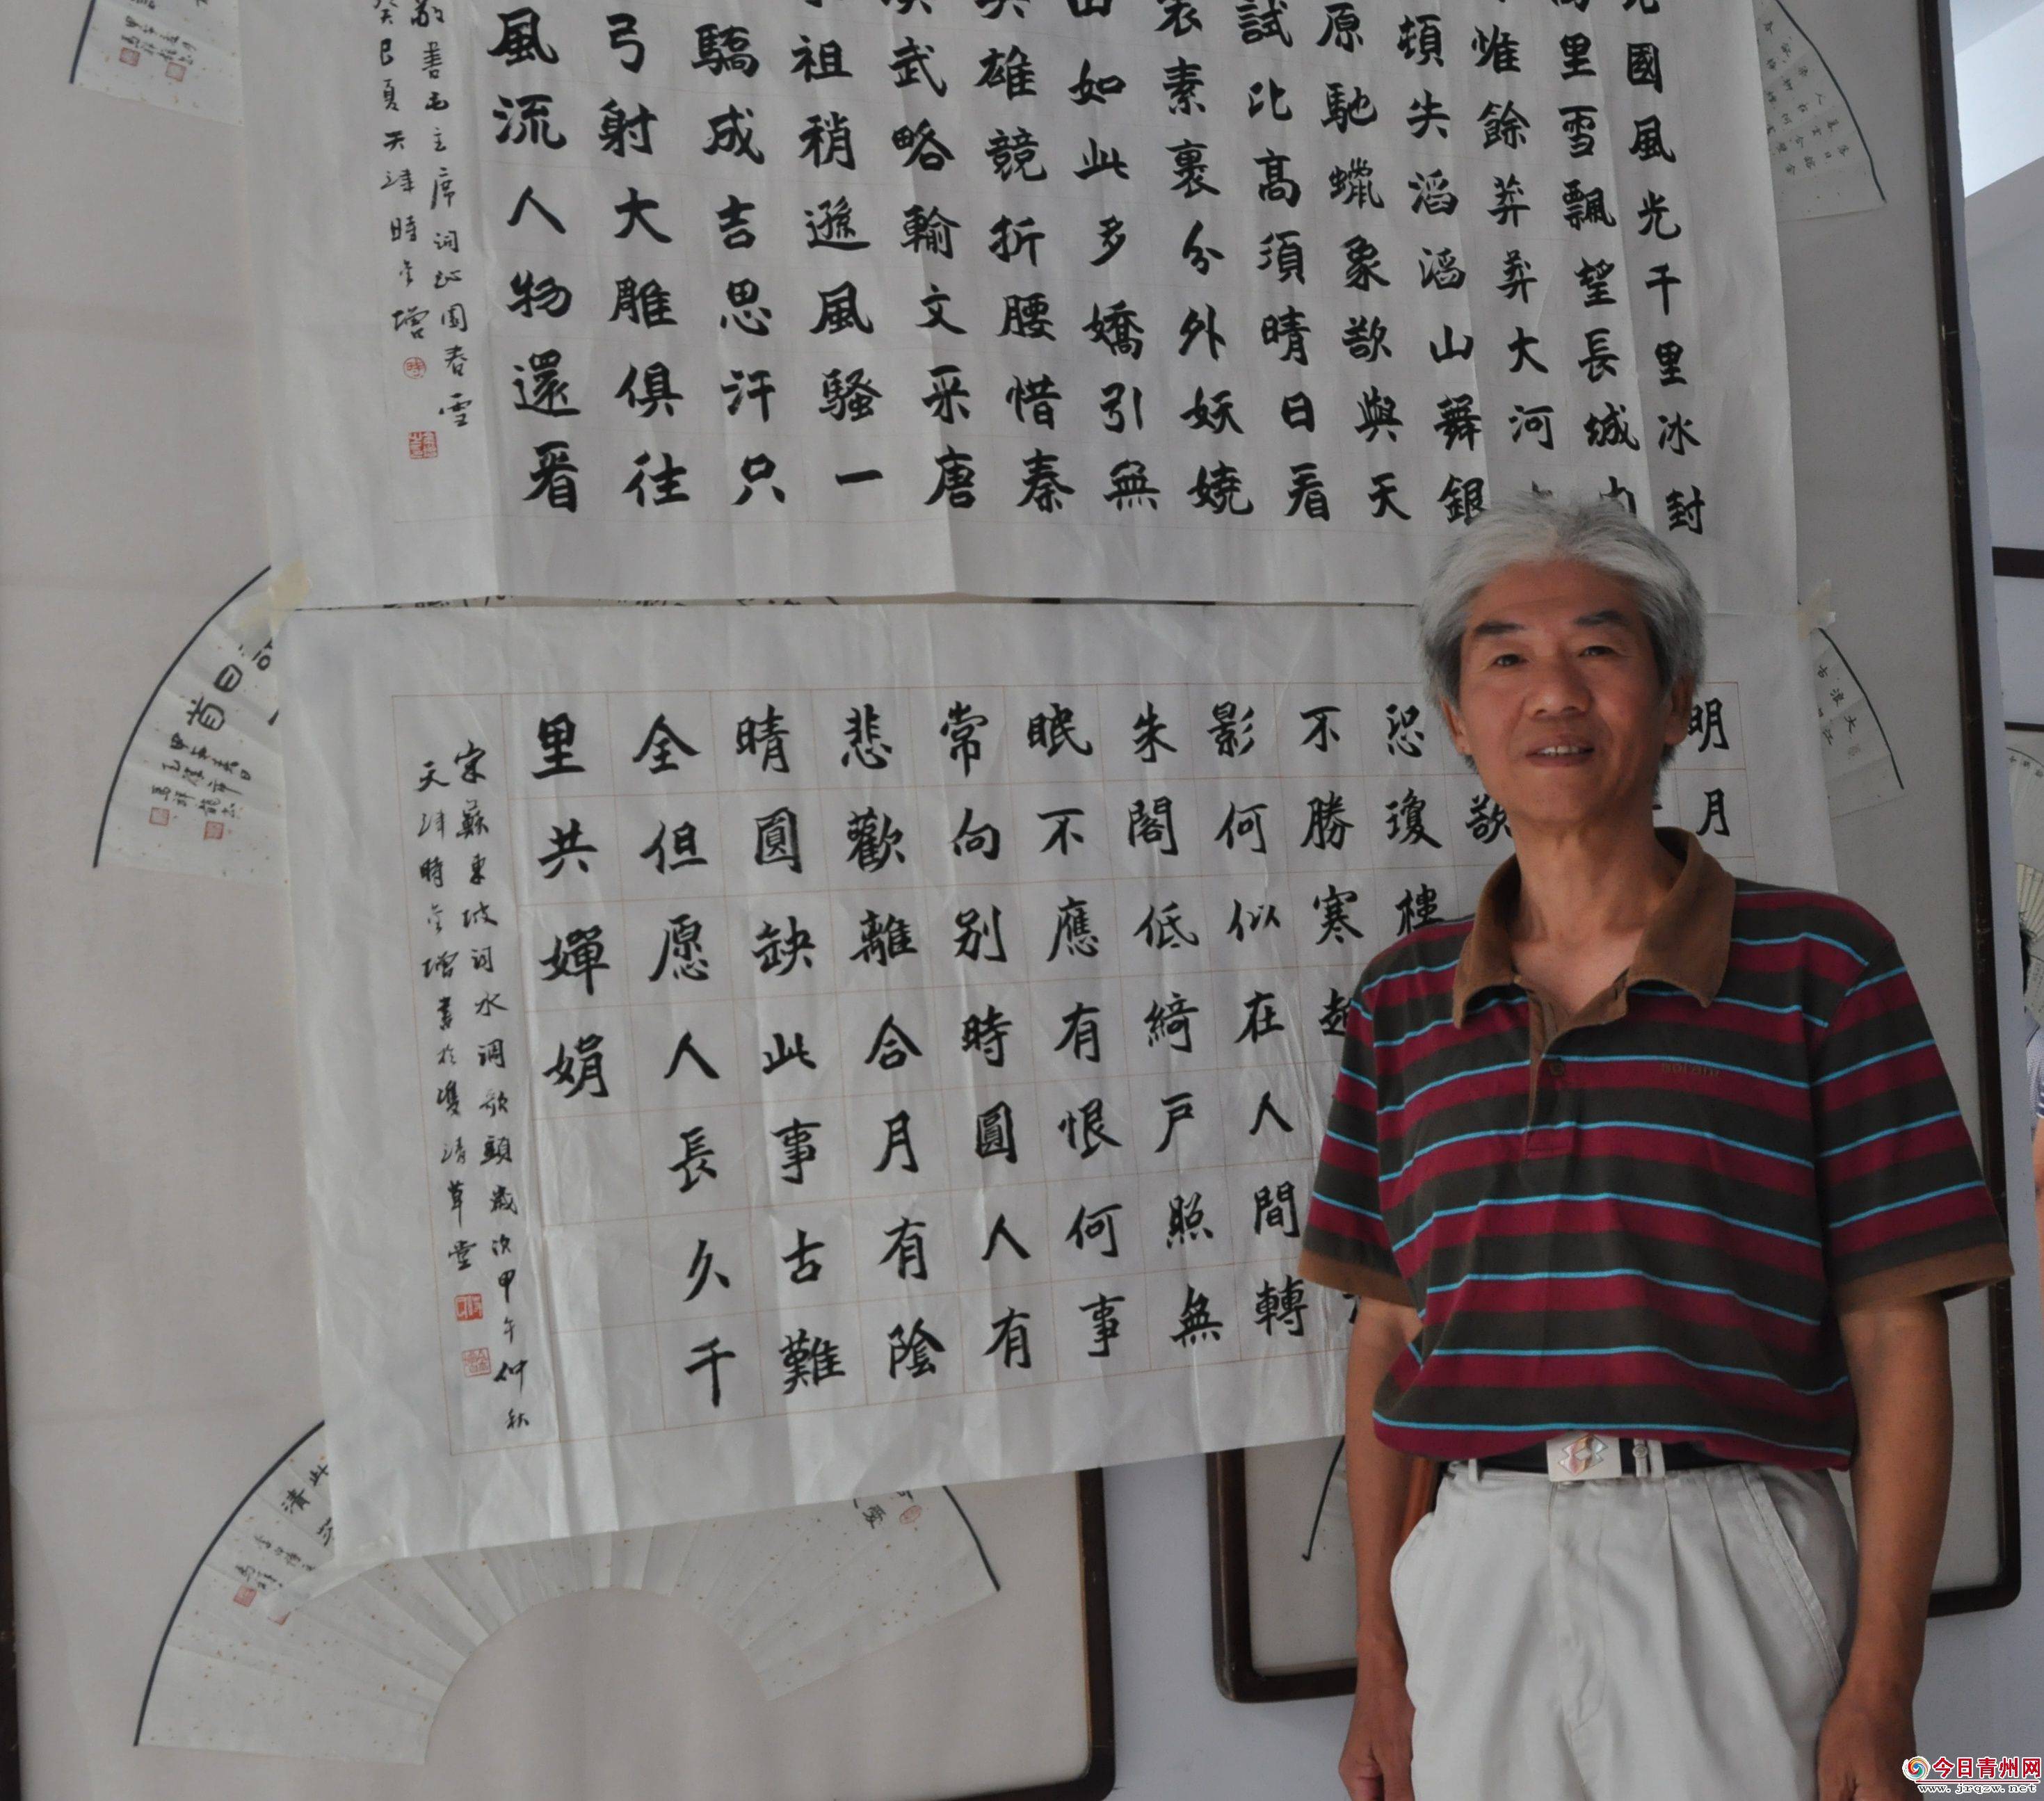 國風光千里冰封
里雪飄望長城
惟餘莽莽大河
頓失滔滔山舞銀
原馳蠟象欲與天
試比高須晴日看
裝素裹分外妖嬈
山如此多嬌引無
英雄競折腰惜秦
漢武略輸文采唐
祖稍遜風騷一
驕成吉思汗只
弓射大雕俱往
風流人物還看
敬書毛主席詞沁園春雪
癸巳夏天津時金增
明月
欲
恐瓊樓
不勝寒起
影何似在人間轉
朱閣低綺戶照無
眠不應有恨何事
常向别時圓人有
悲歡離合月有陰
晴圓缺此事古難
全但愿人長久千
里共嬋娟
宋蘇東坡詞水調歌頭歲次甲午仲秋
天津時金增書於雙清草堂
今日青州网
www.jrqzw.net